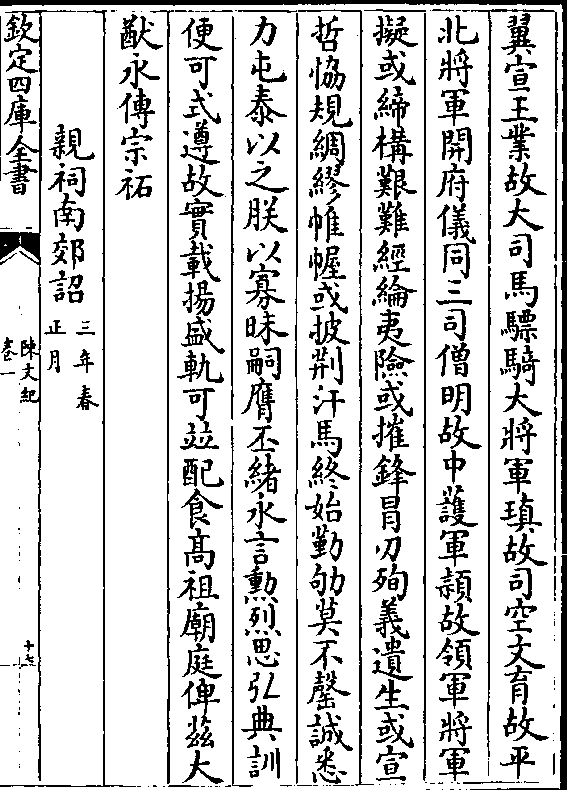 翼宣王業故大司馬驃騎大將軍瑱故司空文育故平
北將軍開府儀同三司僧明故中護軍頴故領軍將軍
擬或締構艱難經綸夷險或摧鋒冒刃殉義遺生或宣
哲恊規綢繆帷幄或披荆汗馬終始勤劬莫不罄誠悉
力屯泰以之朕以寡昧嗣膺丕緒永言勲烈思弘典訓
便可式遵故實載揚盛軌可並配食髙祖廟庭俾兹大
猷永傳宗祏
親祠南郊詔三年春正月
欽定四庫全書
陳文紀
卷一
十七